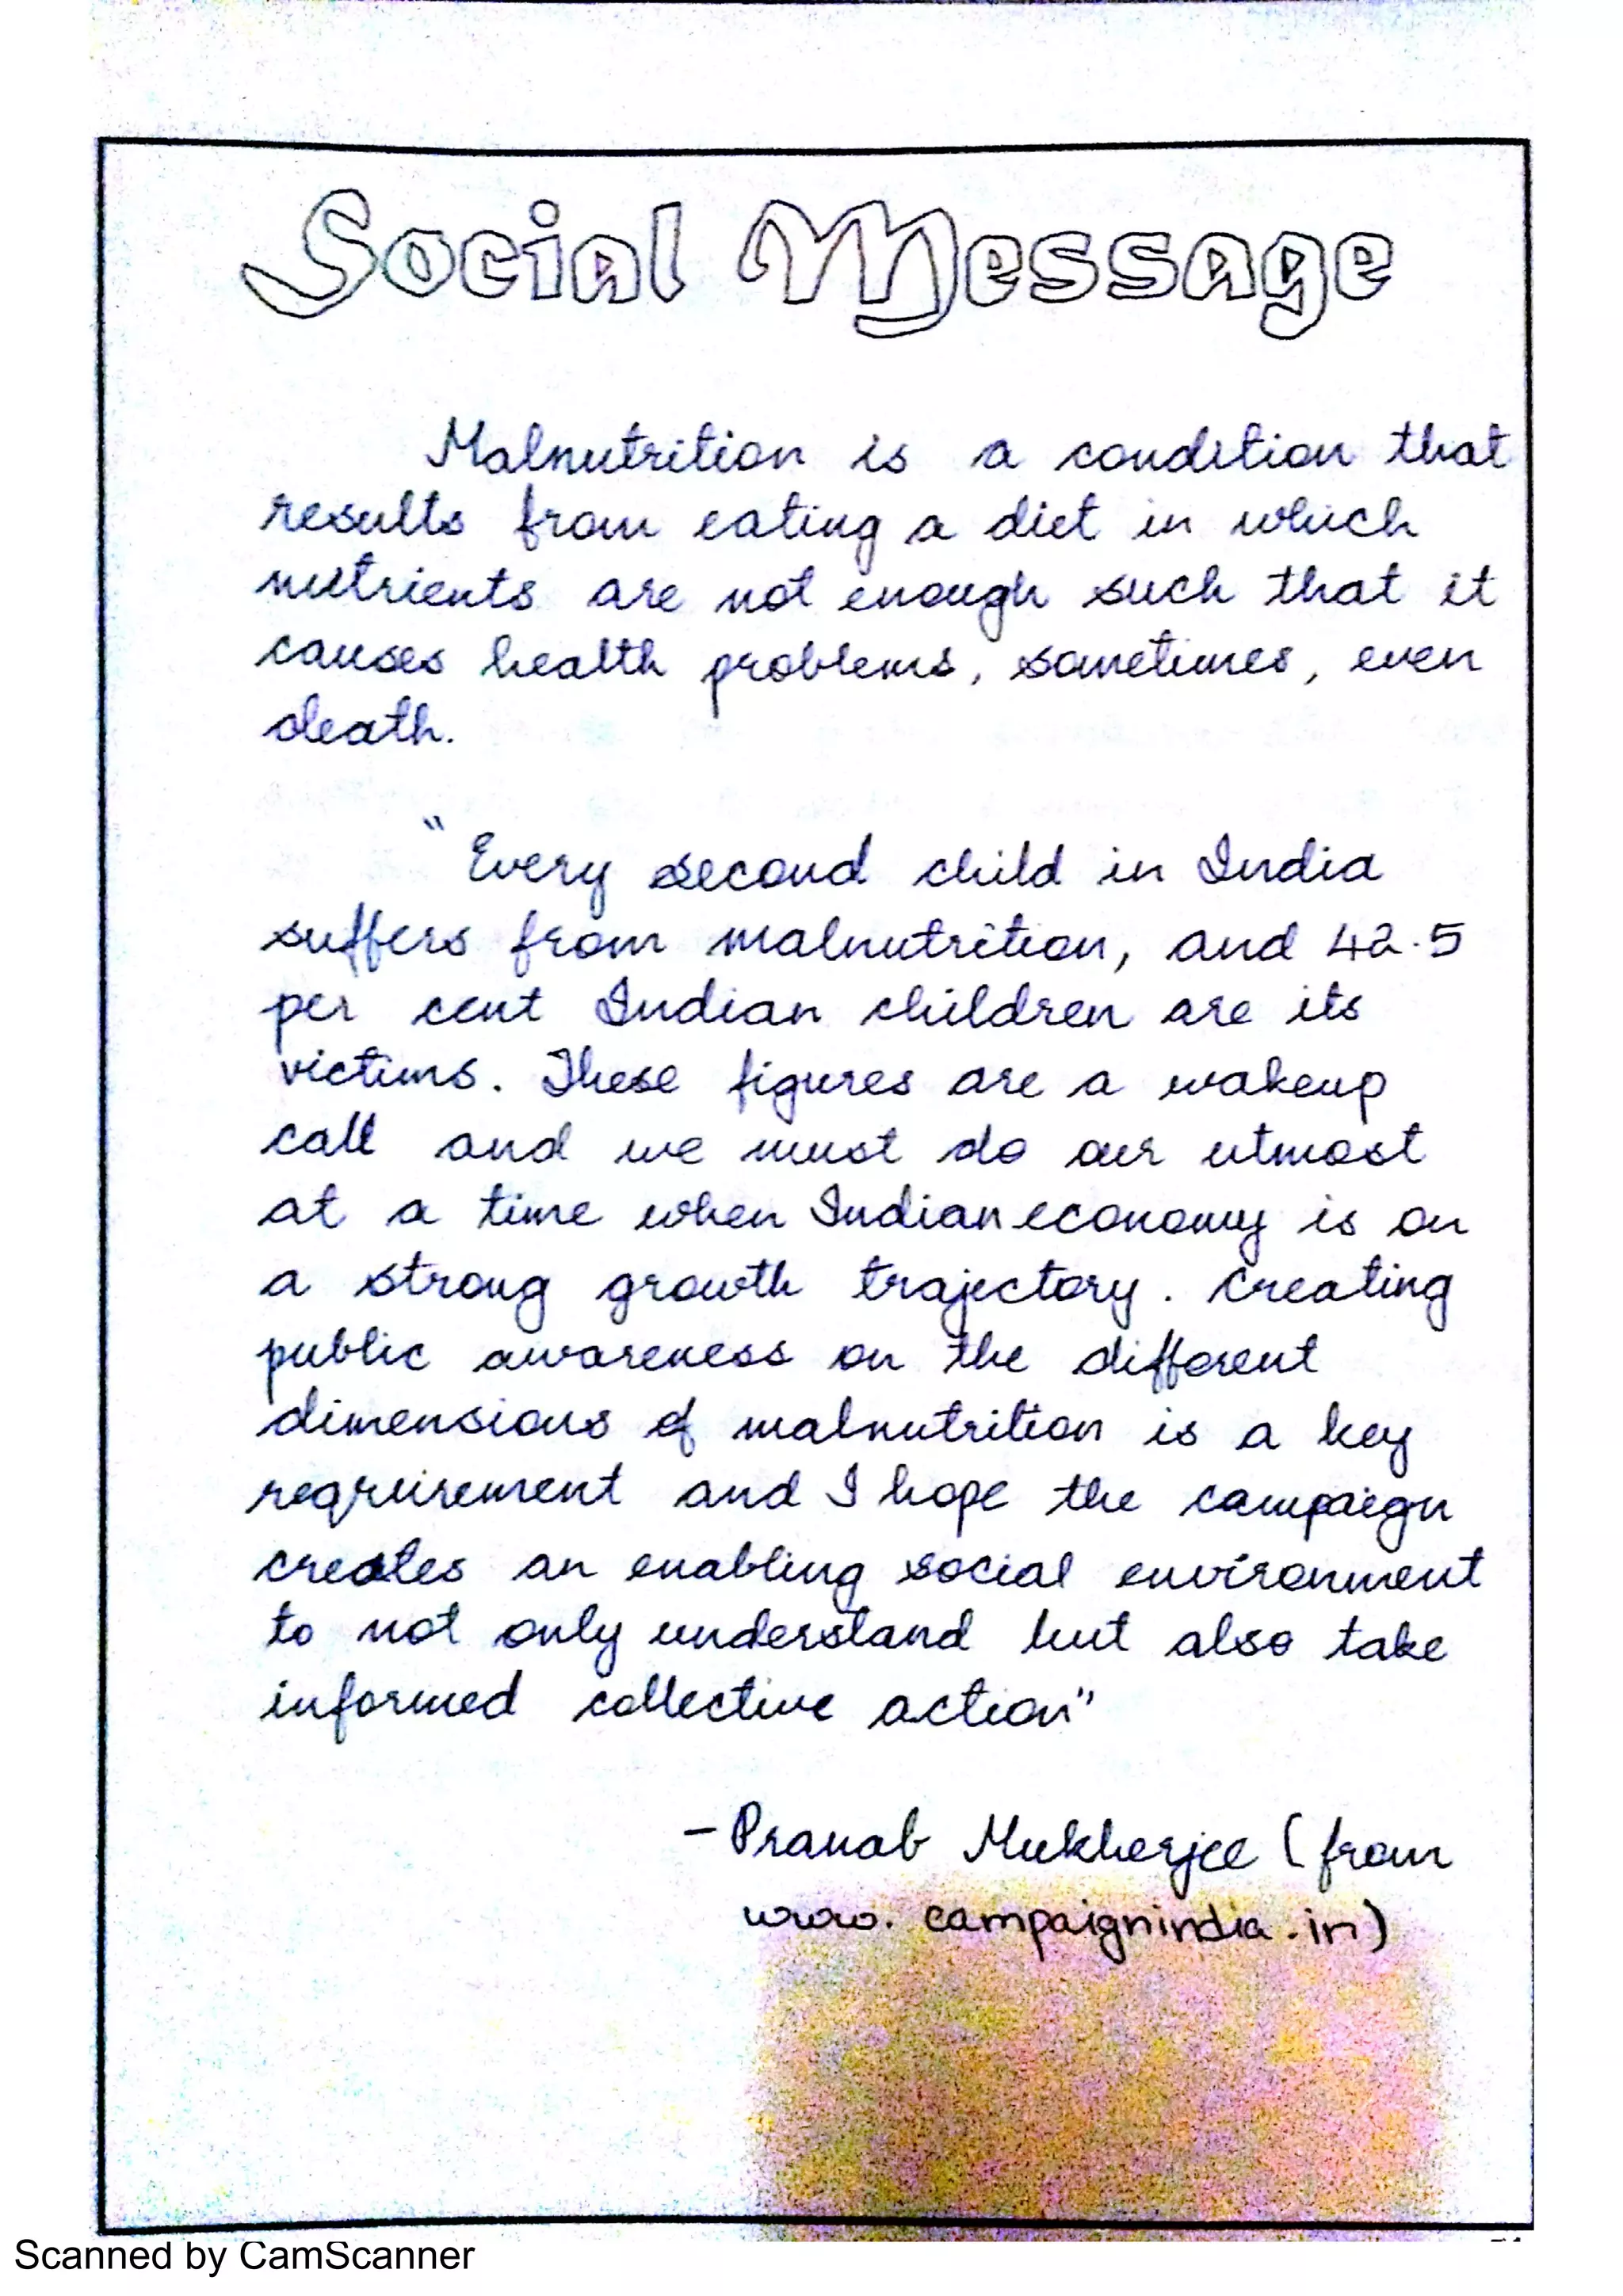 Social Message
Malnutrition is a condition that
results from eating a diet in which
nutrients are not enough such that it
causes health problems, sometimes, even
death.
" Every second child in India
suffers from malnutrition, and 42.5
per cent Indian children are its
victims. These figures are a wakeup
call and we must do our utmost
at a time when Indian economy is on
a strong growth trajectory. Creating
public awareness on the different
dimensions of malnutrition is a key
requirement and I hope the campaign
creates an enabling social environment
to not only understand but also take
informed collective action"
- Pranab Mukherjee (from
www.campaignindia.in)
Scanned by CamScanner